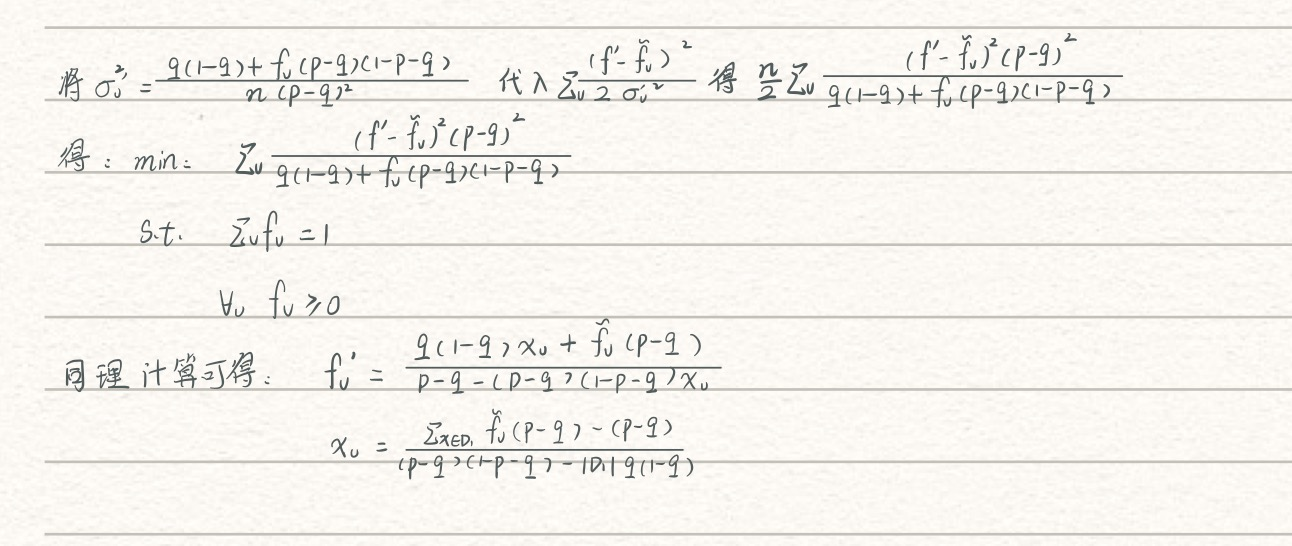 将 σ'ᵥ² = \frac{q(1-q)+fᵥ(p-q)(1-p-q)}{n(p-q)²} 代入 Σᵥ\frac{(f'-f̌ᵥ)²}{2σ'ᵥ²} 得 \frac{n}{2}Σᵥ\frac{(f'-f̌ᵥ)²(p-q)²}{q(1-q)+fᵥ(p-q)(1-p-q)}
得: min: Σᵥ\frac{(f'-f̌ᵥ)²(p-q)²}{q(1-q)+fᵥ(p-q)(1-p-q)}
s.t. Σᵥfᵥ = 1
∀ᵥ fᵥ ≥ 0
同理 计算可得: fᵥ' = \frac{q(1-q)xᵥ + f̌ᵥ(p-q)}{p-q-(p-q)(1-p-q)xᵥ}
xᵥ = \frac{Σ_{x∈D₁} f̌ᵥ(p-q)-(p-q)}{(p-q)(1-p-q)-|D₁|q(1-q)}